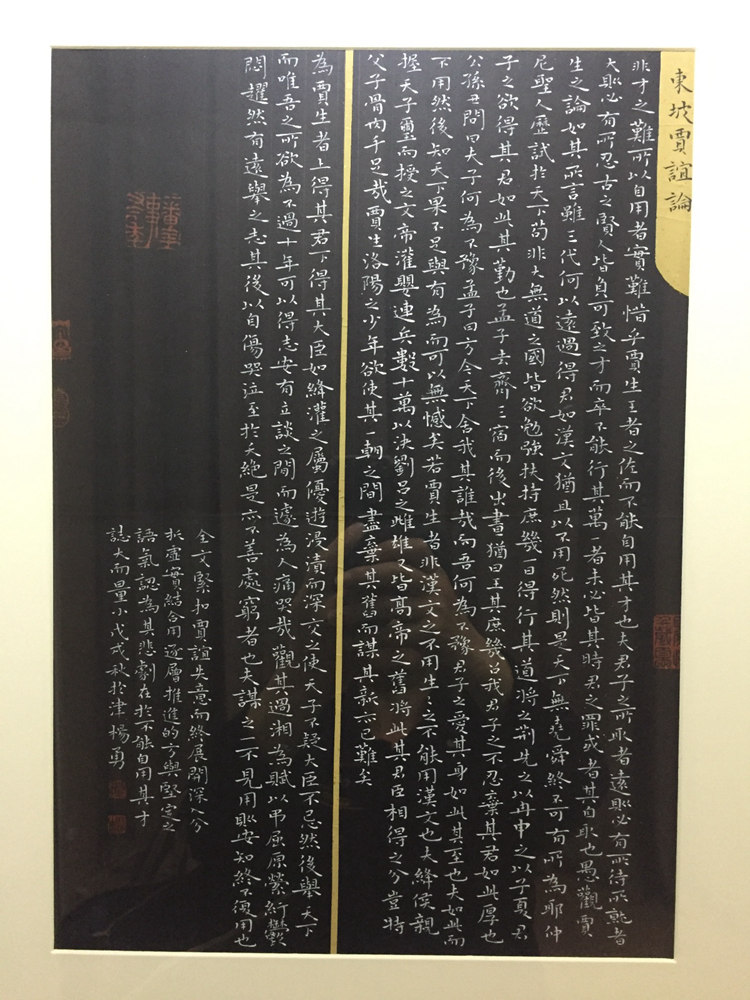 東坡賈誼論
非才之難所以自用者實難惜乎賈生王者之佐而不能自用其才也夫君子之所取者遠則必有所待所就者
大則必有所忍古之賢人皆負可致之才而卒不能行其萬一者未必皆其時君之罪或者其自取也愚觀賈
生之論如其所言雖三代何以遠過得君如漢文猶且以不用死然則是天下無堯舜終不可有所為耶仲
尼聖人歷試於天下苟非大無道之國皆欲勉強扶持庶幾一日得行其道將之荊先之以冉申之以子夏君
子之欲得其君如此其勤也孟子去齊三宿而後出晝猶曰王其庶幾召我君子之不忍棄其君如此厚也
公孫丑問曰夫子何為不豫孟子曰方今天下舍我其誰哉而吾何為不豫君子之愛其身如此其至也夫如此而
不用然後知天下果不足與有為而可以無憾矣若賈生者非漢文之不用生生之不能用漢文也夫絳侯親
握天子璽而授之文帝灌嬰連兵數十萬以決劉呂之雌雄又皆高帝之舊將此其君臣相得之分豈特
父子骨肉手足哉賈生洛陽之少年欲使其一朝之間盡棄其舊而謀其新亦已難矣
為賈生者上得其君下得其大臣如絳灌之屬優游浸漬而深交之使天子不疑大臣不忌然後舉天下
而唯吾之所欲為不過十年可以得志安有立談之間而遽為人痛哭哉觀其過湘為賦以弔屈原縈紆鬱
悶趯然有遠舉之志其後以自傷哭泣至於夭絕是亦不善處窮者也夫謀之一不見用則安知終不復用也
全文緊扣賈誼失意而終展開深入分
析虛實結合用逐層推進的方與堅定之
語氣認為其悲劇在於不能自用其才
誌大而量小戊戌秋於津楊勇